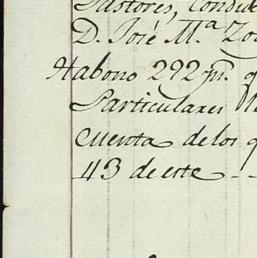 Pastores, Condu
D. José M.ª Zo
Habono 292 ps. q
Particulares
Cuenta de los q
43 de este